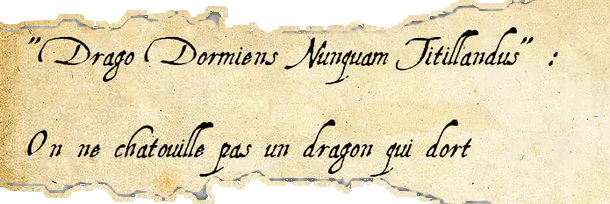 "Drago Dormiens Nunquam Titillandus" :
On ne chatouille pas un dragon qui dort